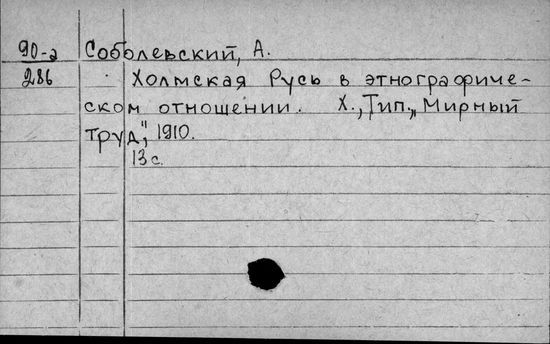 90-а Соболевский, А.
286 Холмская Русь в этнографиче-
ском отношении. Х., Тип. „Мирный
труд", 1910.
13 с.